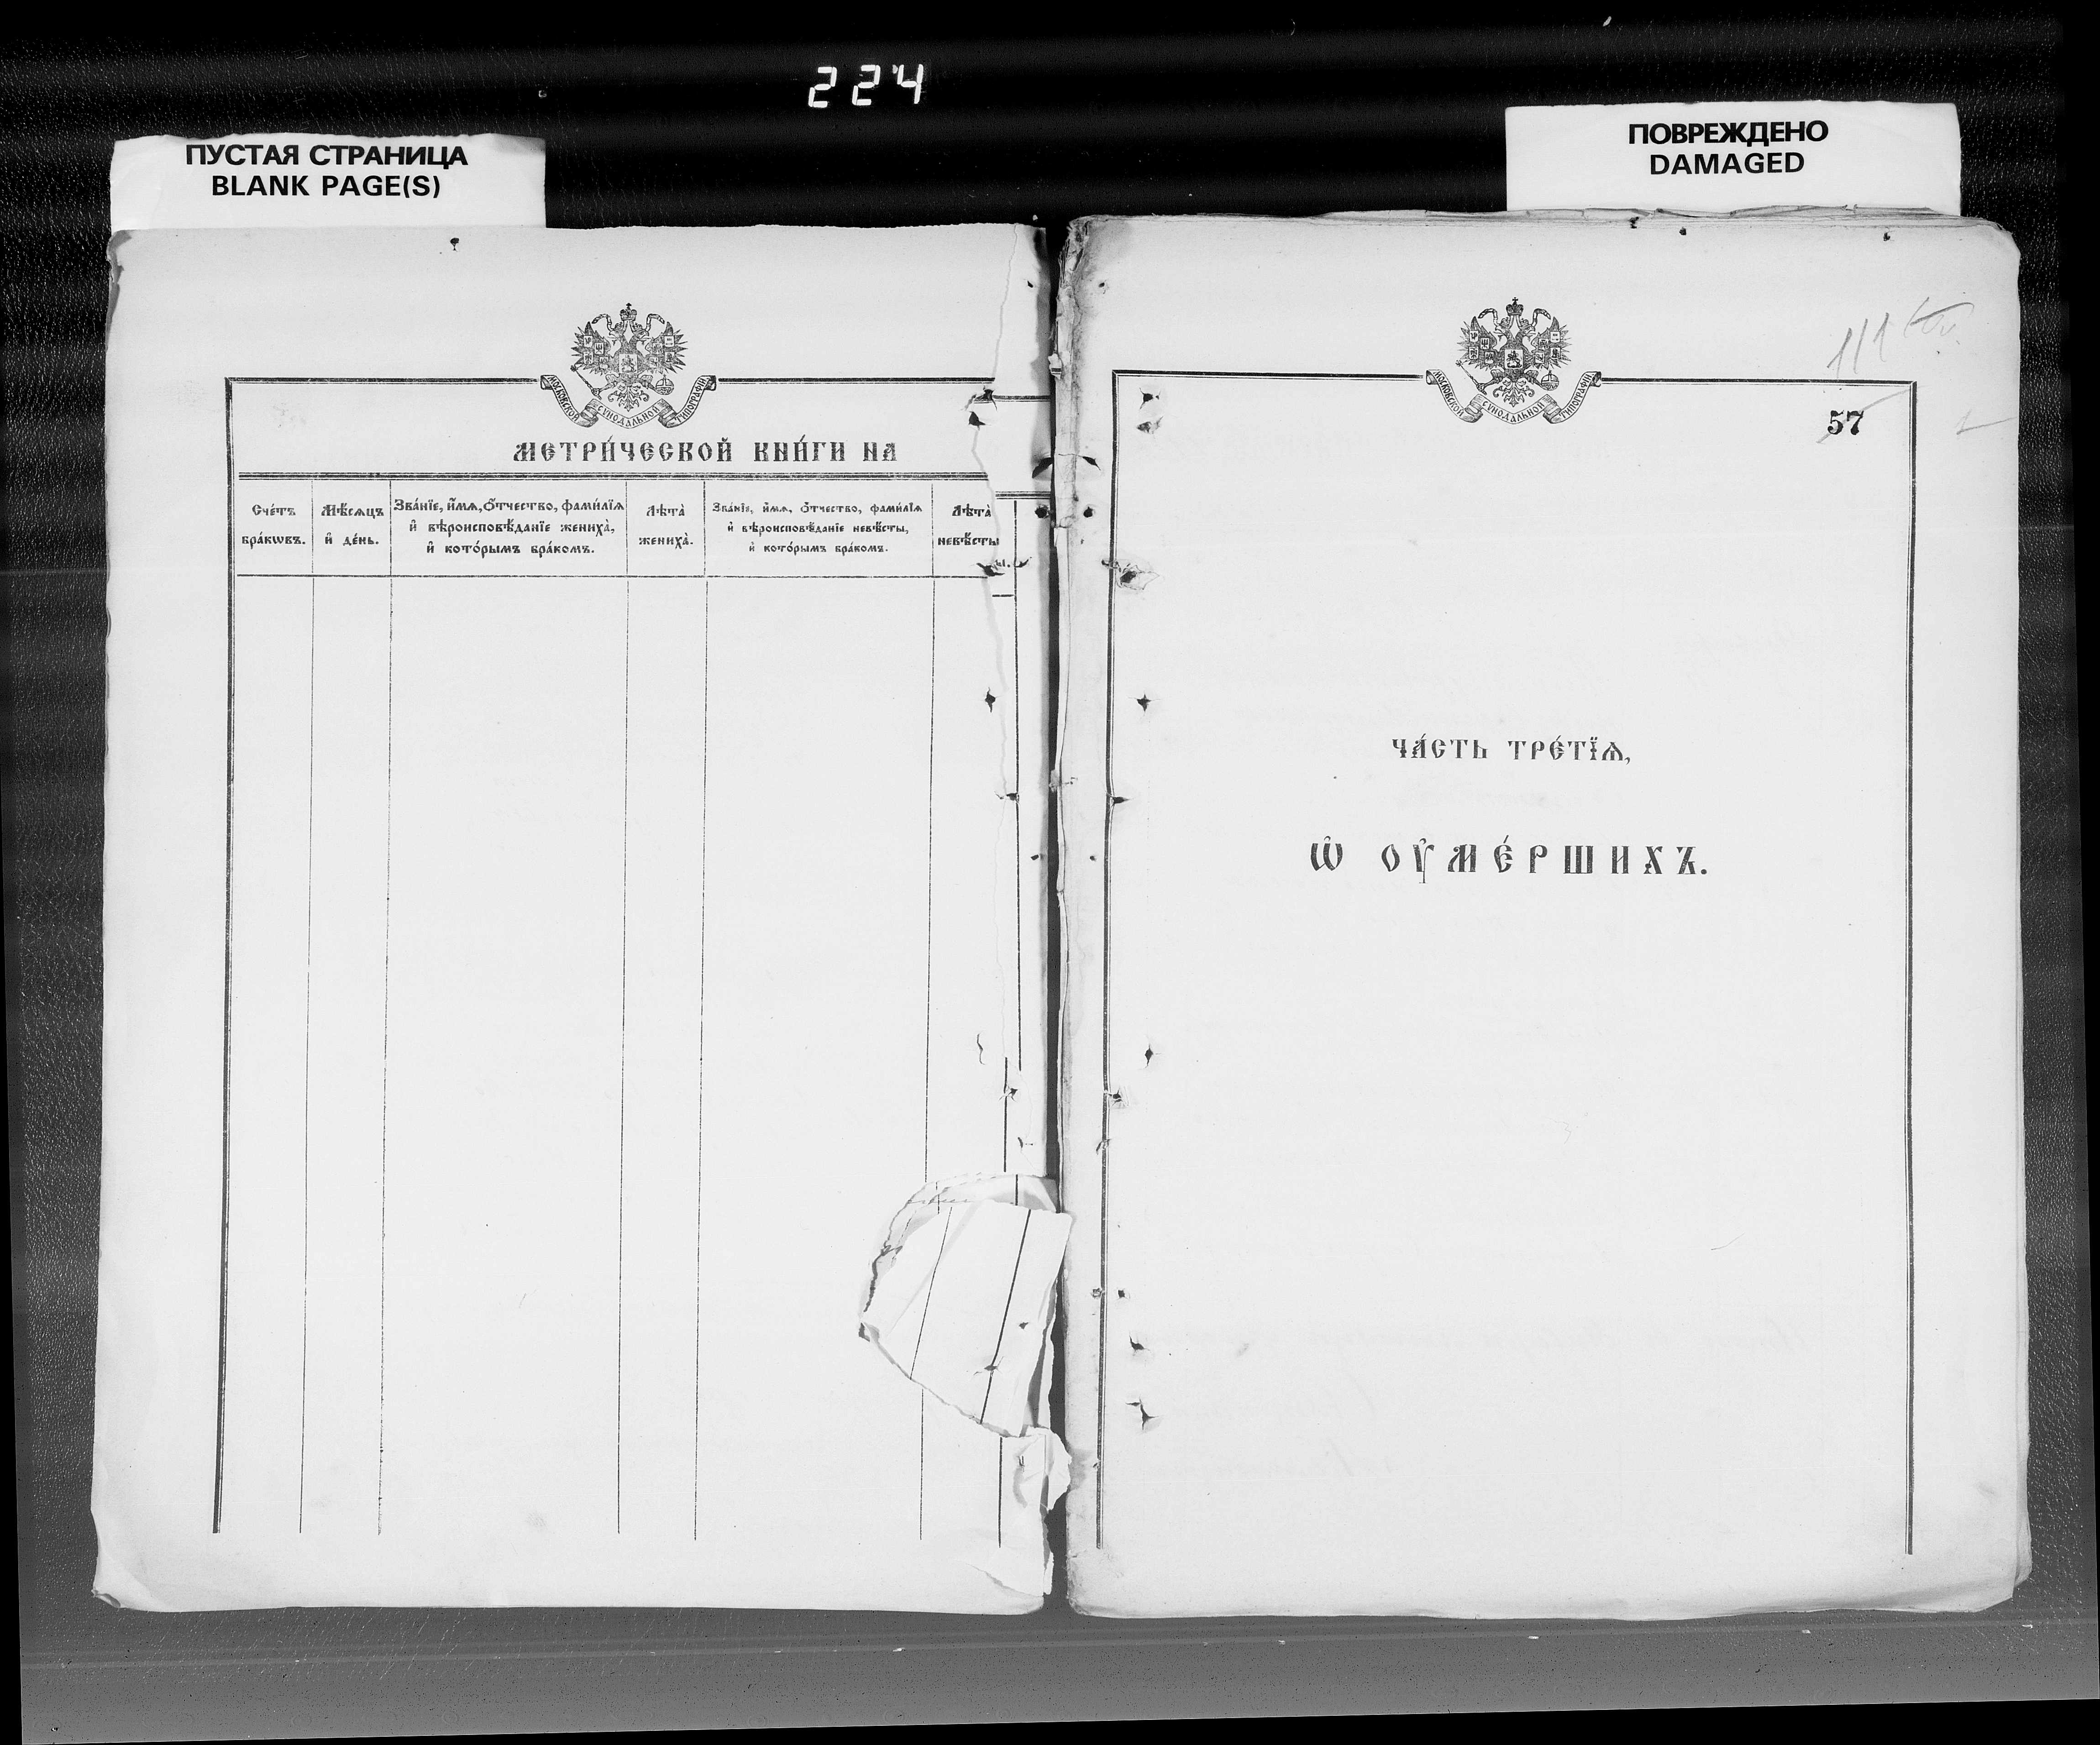 224
ПУСТАЯ СТРАНИЦА
BLANK PAGE(S)
ПОВРЕЖДЕНО
DAMAGED
МОСКОВСКОЙ СѴНОДАЛЬНОЙ ТИПОГРАФІИ
МЕТРИ́ЧЕСКОЙ КНИ́ГИ НА
Сче́тъ бра́кѡвъ.
Мѣ́сѧцъ и҆ де́нь.
Зва́нїе, и҆́мѧ, ѻ҆́тчество, фами́лїѧ
и҆ вѣроисповѣ́данїе жениха̀,
и҆ кото́рымъ бра́комъ.
Лѣта̀ жениха̀.
Зва́нїе, и҆́мѧ, ѻ҆́тчество, фами́лїѧ
и҆ вѣроисповѣ́данїе невѣ́сты,
и҆ кото́рымъ бра́комъ.
Лѣта̀ невѣ́сты
МОСКОВСКОЙ СѴНОДАЛЬНОЙ ТИПОГРАФІИ
111
57
ЧА́СТЬ ТРЕ́ТЇѦ,
Ѡ҆ ОУ҆МЕ́РШИХЪ.